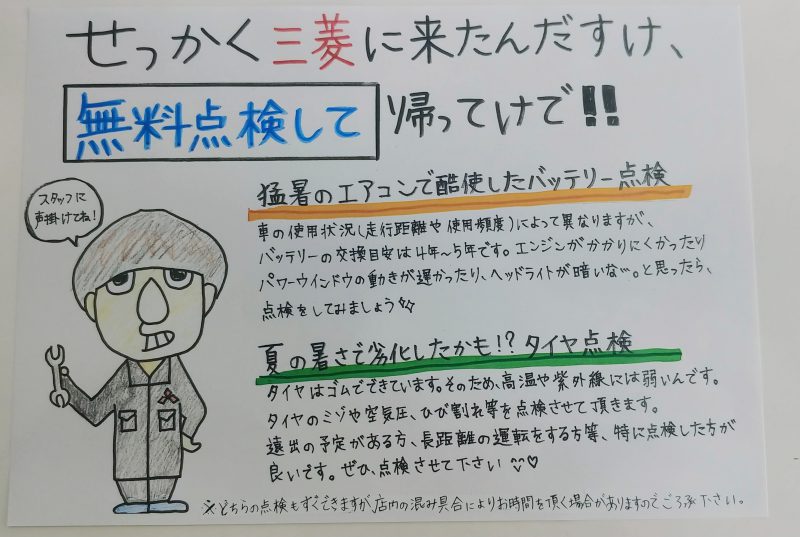 せっかく三菱に来たんだすけ、
無料点検して帰ってけで!!
スタッフに
声掛けてね!
猛暑のエアコンで酷使したバッテリー点検
車の使用状況(走行距離や使用頻度)によって異なりますが、
バッテリーの交換目安は4年~5年です。エンジンがかかりにくかったり
パワーウインドウの動きが遅かったり、ヘッドライトが暗いな…。と思ったら、
点検をしてみましょう
夏の暑さで劣化したかも!?タイヤ点検
タイヤはゴムでできています。そのため、高温や紫外線には弱いんです。
タイヤのミゾや空気圧、ひび割れ等を点検させて頂きます。
遠出の予定がある方、長距離の運転をする方等、特に点検した方が
良いです。ぜひ、点検させて下さい
※どちらの点検もすぐできますが、店内の混み具合によりお時間を頂く場合がありますのでご了承下さい。